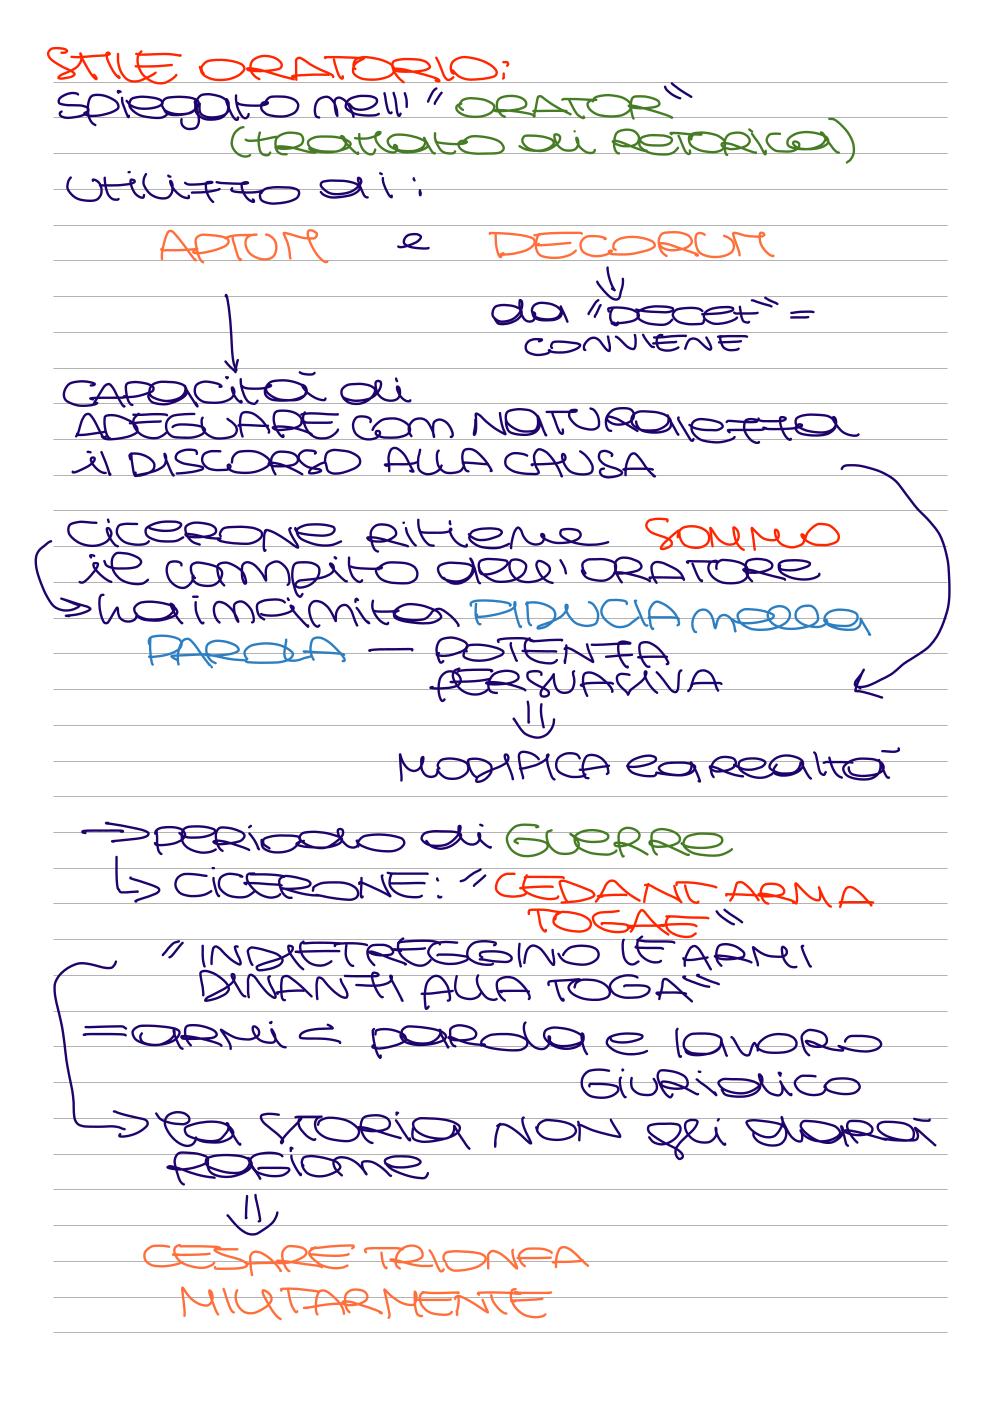 STILE ORATORIO:
spiegato nell' "ORATOR"
(trattato di RETORICA)
UTILIZZO di:
APTUM e DECORUM
da "DECET" =
CONVIENE
CAPACità di
ADEGUARE con NATURAlezza
il DISCORSO ALLA CAUSA
CICERONE RITIENE SOMMO
il compito dell'ORATORE
→ ha infinita FIDUCIA nella
PAROLA — POTENZA
PERSUASIVA
⇓
MODIFICA la realtà
→ PERiodo di GUERRE
↳ CICERONE: "CEDANT ARMA
TOGAE"
"INDIETREGGINO LE ARMI
DINANZI ALLA TOGA"
= ARMi < parola e lavoro
GIURidico
→ la STORIA NON gli darà
RAGione
⇓
CESARE TRIONFA
MILITARMENTE